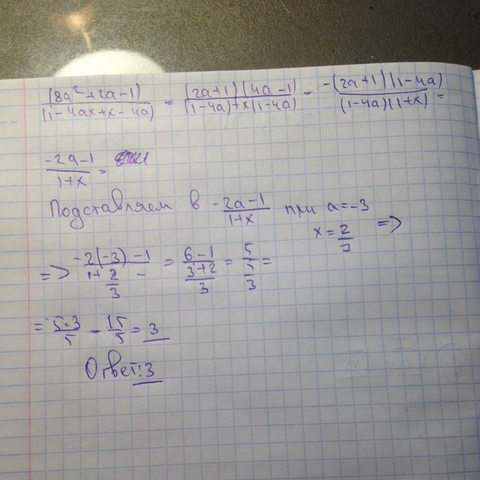 (8a²+2a-1)/(1-4ax+x-4a) = (2a+1)(4a-1)/(1-4a)+x(1-4a) = -(2a+1)(1-4a)/(1-4a)(1+x) =
-2a-1/1+x =
Подставляем в -2a-1/1+x при a=-3
x=2/3 =>
=> -2(-3)-1/1+2/3 = 6-1/(3+2/3) = 5/(5/3) =
= 5·3/5 - 15/5 = 3
Ответ: 3